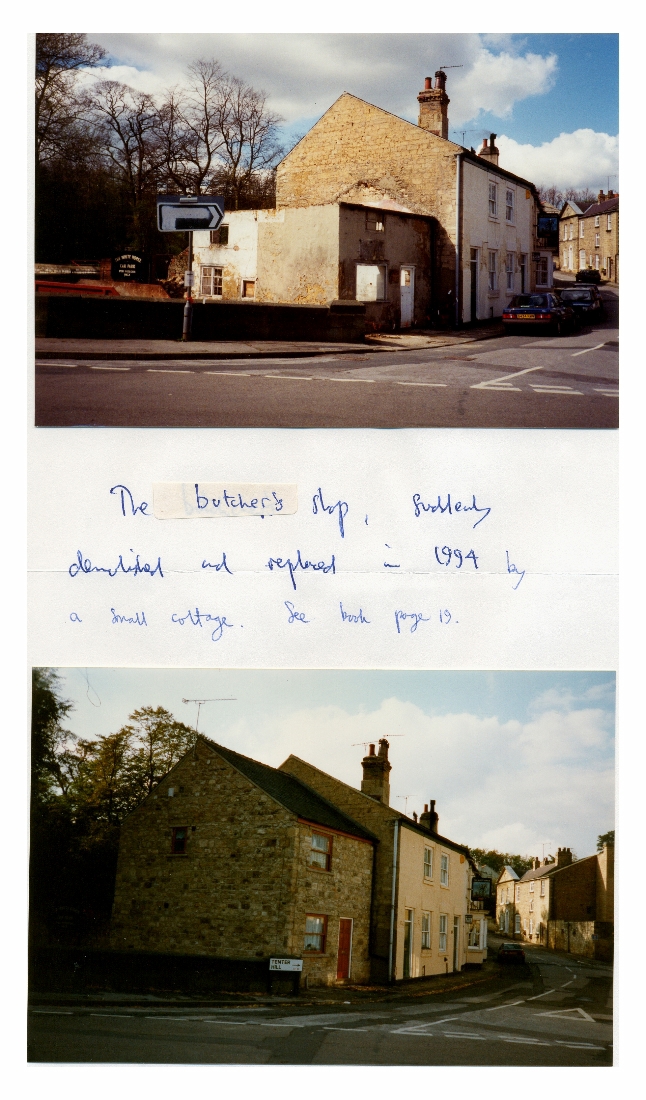 THE WHITE HORSE
CAR PARK
The butcher's shop, suddenly
demolished and replaced in 1994 by
a small cottage. See book page 19.
TENTER
HILL